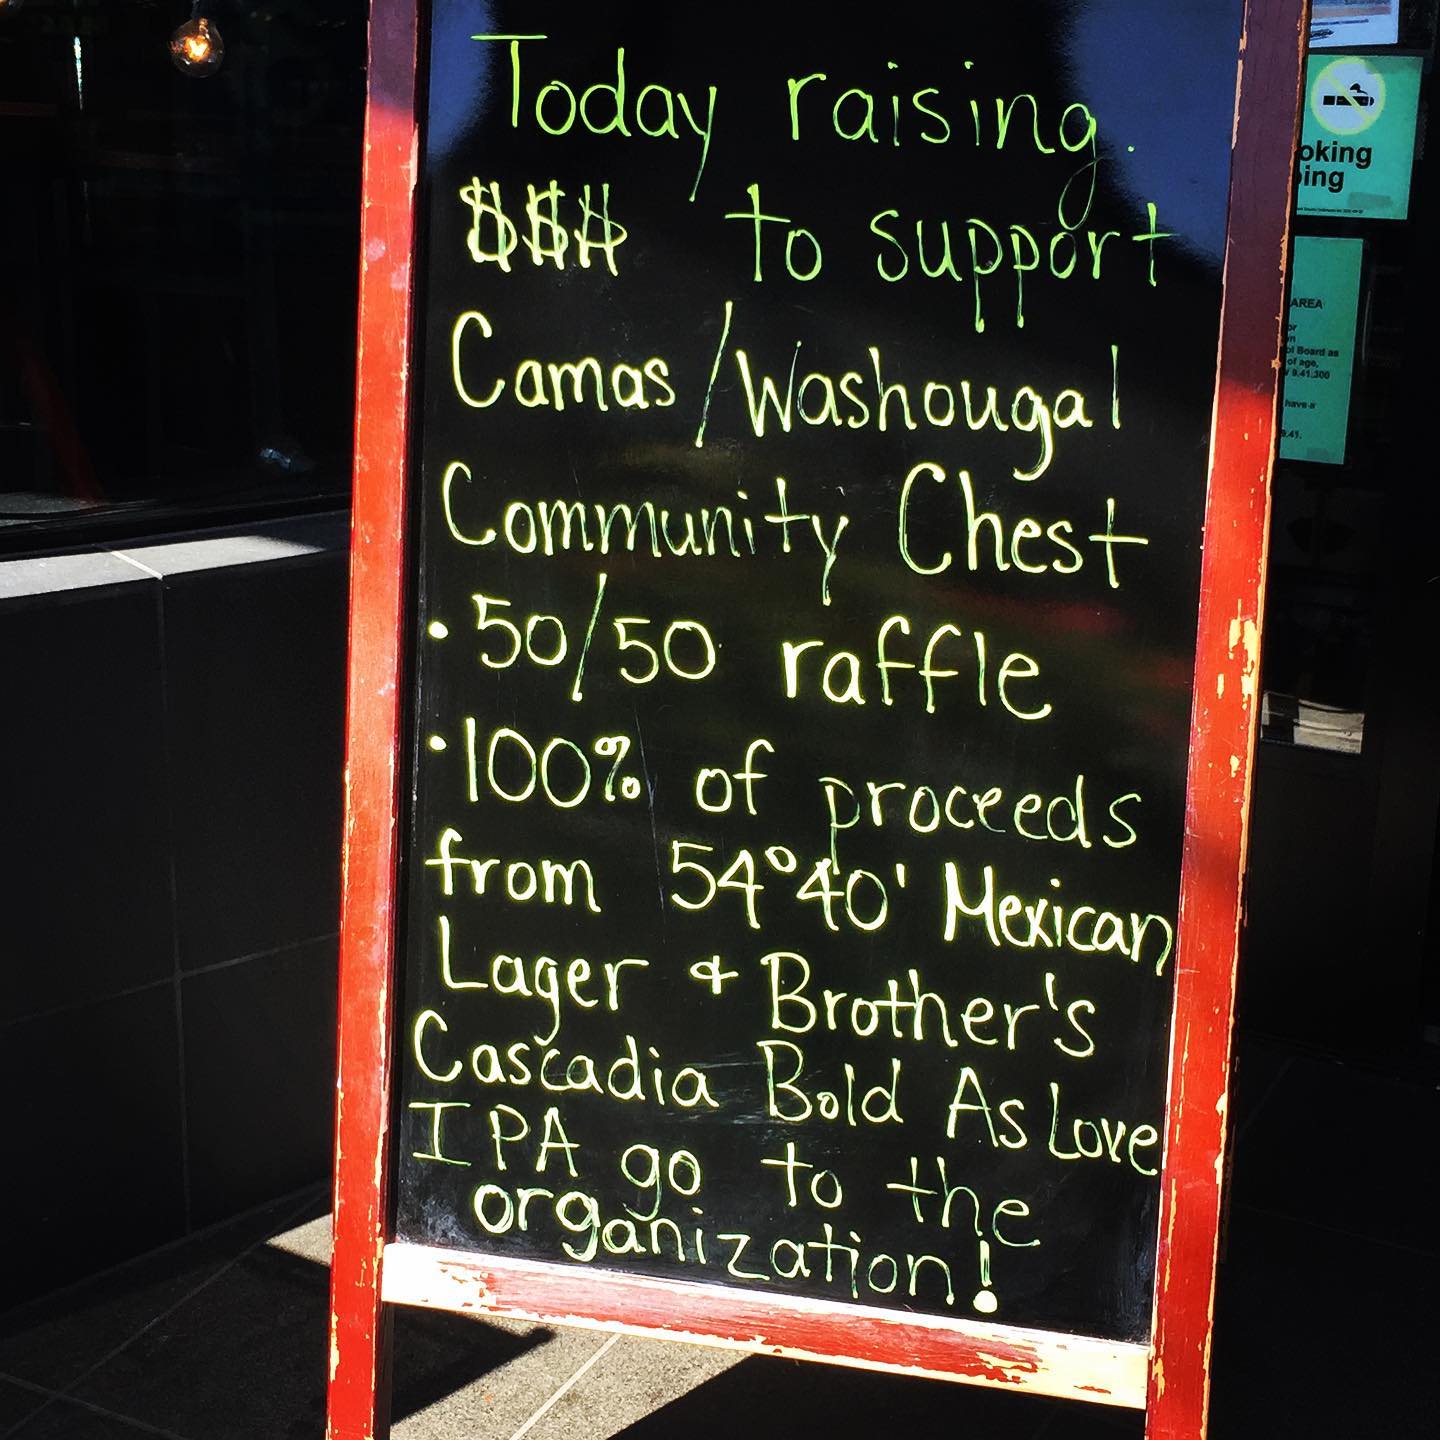 Today raising.
$$$ to support
Camas/Washougal
Community Chest
• 50/50 raffle
• 100% of proceeds
from 54°40' Mexican
Lager & Brother's
Cascadia Bold As Love
IPA go to the
organization!
oking
ing
AREA
or
ol Board as
of age,
9.41.300
have a
9.41.